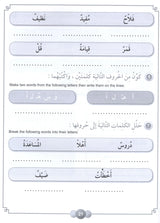 فَلَّاحٌ مُفِيدٌ نَظِيفٌ
قَمَرٌ قِيَامَةٌ قُلْ
كَوِّنْ مِنَ الْحُرُوفِ التَّالِيَةِ كَلِمَتَيْنِ، وَاكْتُبْهُمَا
Make two words from the following letters then write them on the lines.
حَلِّلِ الْكَلِمَاتِ التَّالِيَةَ إِلَى حُرُوفِهَا
Break the following words into their letters.
دُرُوسٌ أَهْلًا الْمُسَاعَدَةُ
أَخْطَأْتُ ضَيْفٌ